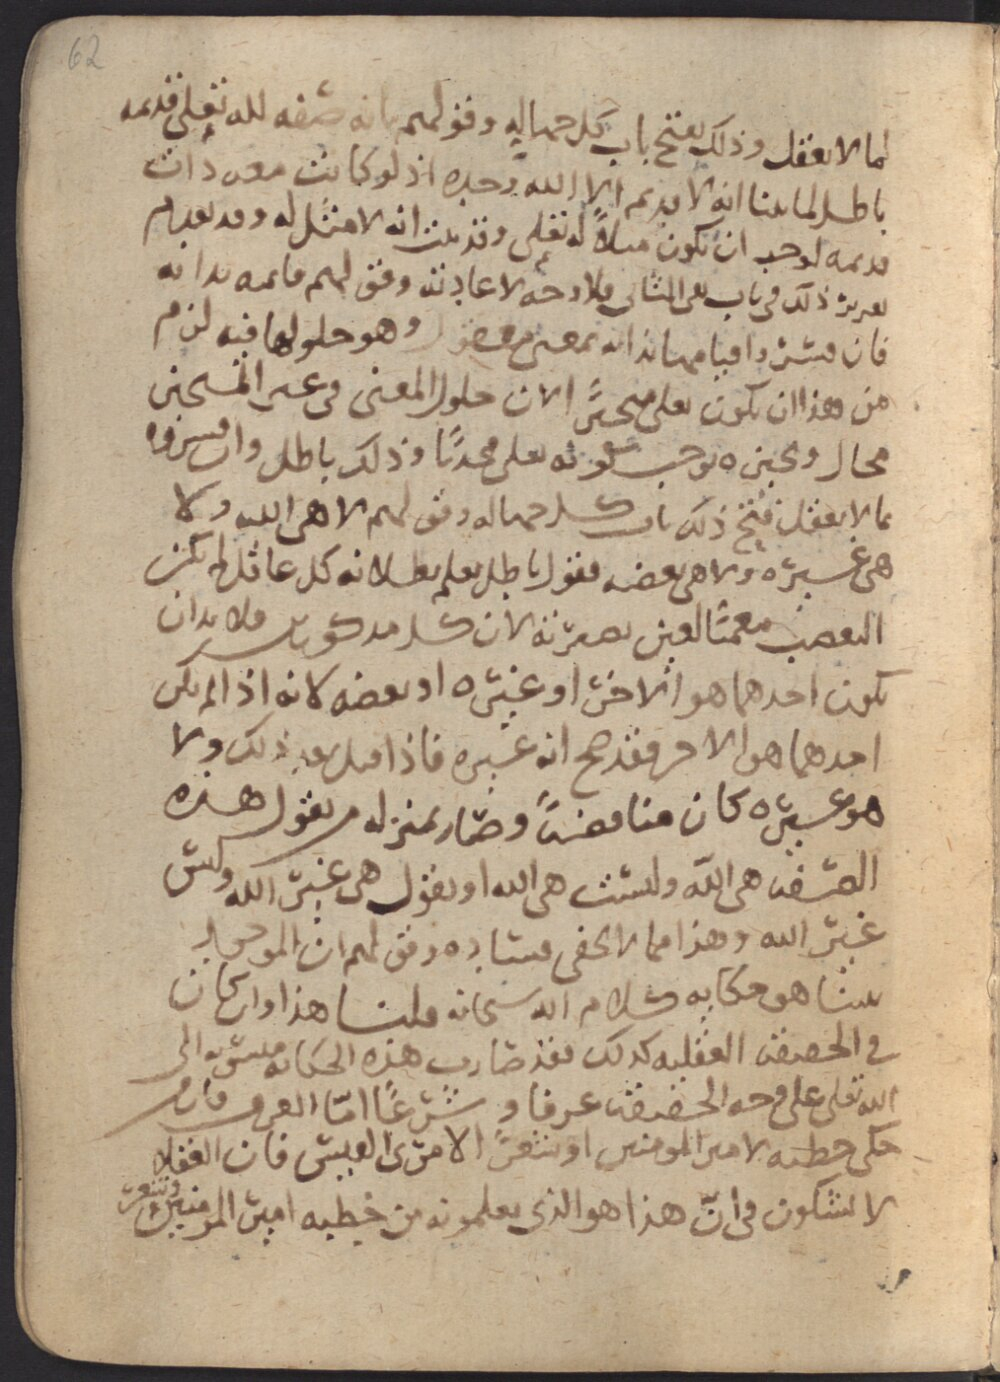 62
لما لا يعقل وذلك يفتح باب كل جهاله وقولهم بانه صفه لله تعلى قديمه
باطل لما بينا انه لا قديم الا الله وحده اذ لو كانت معه ذات
قديمه لوجب ان يكون مثلاً له تعلى وقد بينت انه لا مثل له وقد تقدم
تقرير ذلك في باب نفي الثاني فلا وجه لاعادته وقولهم قايمه بذاته
فان فسروا قيامها بذاته بمعنى معقول وهو حلولها فيه لزم
من هذا ان يكون تعلى متحيزًا لان حلول المعنى في غير المتحيز
محال وتحيزه يوجب كونه تعلى محدثًا وذلك باطل وان فسروه
بما لا يعقل فتح ذلك باب كل جهاله وقولهم لا هي الله ولا
هي غيره ولا هي بعضه فقول باطل يعلم بطلانه كل عاقل لم يكن
التعصب معميًا لعين بصيرته لان كل مذكورين فلا بد ان
يكون احدهما هو الاخر او غيره او بعضه لانه اذا لم يكن
احدهما هو الاخر فقد صح انه غيره فاذا قيل بعد ذلك ولا
هو غيره كان مناقضةً وصار بمنزله من يقول هذه
الصفه هي الله وليست هي الله او يقول هي غير الله وليس
غير الله وهذا مما لا يخفى فساده وقولهم ان الموجود
بيننا هو حكايه كلام الله سبحانه قلنا هذا وان كان
في الحقيقه العقليه كذلك فقد صارت هذه الحكايه منسوبه الى
الله تعلى على وجه الحقيقه عرفا وشرعًا امّا العرف فان من
حكى خطبه لامير المومنين او شعرًا لامرى القيس فان العقلا
لا يشكون في انّ هذا هو الذي يعلمونه من خطبه امير المومنين وشعر